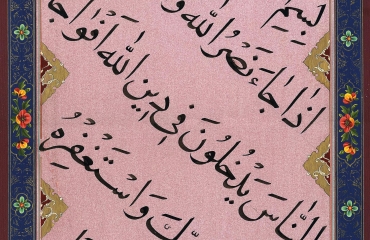 بِسْمِ
اِذَا جَاءَ نَصْرُ اللهِ وَ
النَّاسَ يَدْخُلُونَ فِي دِينِ اللهِ اَفْوَاجًا
وَاسْتَغْفِرْهُ